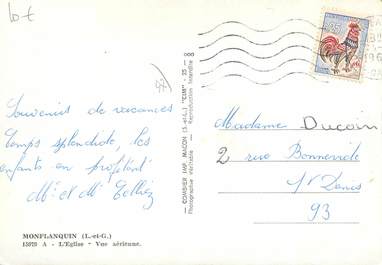 10 t
Souvenirs de vacances
Temps splendide, les
enfants en profitent
Mr et Me
MONFLANQUIN (L.-et-G.)
A - L'Eglise - Vue aérienne.
COMBIER IMP. MACON (S.-et-L.) "CIM"
Photographie véritable - Reproduction interdite
Madame Ducoin
2 rue Bonnevide
St Denis
93